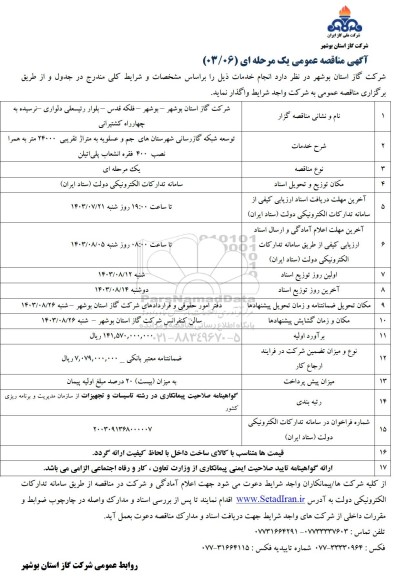 شرکت ملی گاز ایران
شرکت گاز استان بوشهر
شرکت گاز استان بوشهر
آگهی مناقصه عمومی یک مرحله ای (۰۳/۰۶)
شرکت گاز استان بوشهر در نظر دارد انجام خدمات ذیل را براساس مشخصات و شرایط کلی مندرج در جدول و از طریق
برگزاری مناقصه عمومی به شرکت واجد شرایط واگذار نماید.
۱ نام و نشانی مناقصه گزار شرکت گاز استان بوشهر – بوشهر – فلکه قدس – بلوار رئیسعلی دلواری – نرسیده به
چهارراه کشتیرانی
۲ شرح خدمات توسعه شبکه گازرسانی شهرستان های جم و عسلویه به متراژ تقریبی ۲۴۰۰۰ متر به همرا
نصب ۴۰۰ فقره انشعاب پلی‌اتیلن
۳ نوع مناقصه یک مرحله ای
۴ مکان توزیع و تحویل اسناد سامانه تدارکات الکترونیکی دولت (ستاد ایران)
۵ آخرین مهلت دریافت اسناد ارزیابی کیفی از
سامانه تدارکات الکترونیکی دولت (ستاد ایران) تا ساعت ۱۹:۰۰ روز شنبه ۱۴۰۳/۰۷/۲۱
۶ آخرین مهلت اعلام آمادگی و ارسال اسناد
ارزیابی کیفی از طریق سامانه تدارکات
الکترونیکی دولت (ستاد ایران) تا ساعت ۰۸:۰۰ روز شنبه ۱۴۰۳/۰۸/۰۵
۷ اولین روز توزیع اسناد شنبه ۱۴۰۳/۰۸/۱۲
۸ آخرین روز توزیع اسناد دوشنبه ۱۴۰۳/۰۸/۱۴
۹ مکان تحویل ضمانتنامه و زمان تحویل پیشنهادها دفتر امور حقوقی و قراردادهای شرکت گاز استان بوشهر – شنبه ۱۴۰۳/۰۸/۲۶
۱۰ مکان و زمان گشایش پیشنهادها سالن کنفرانس شرکت گاز استان بوشهر – شنبه ۱۴۰۳/۰۸/۲۶
۱۱ برآورد اولیه ۱۴۱,۵۷۰,۰۰۰,۰۰۰ ریال
۱۲ نوع و میزان تضمین شرکت در فرایند
ارجاع کار ضمانتنامه معتبر بانکی – ۷,۰۷۹,۰۰۰,۰۰۰ ریال
۱۳ میزان پیش پرداخت به میزان (بیست) ۲۰ درصد مبلغ اولیه پیمان
۱۴ رتبه بندی گواهینامه صلاحیت پیمانکاری در رشته تاسیسات و تجهیزات از سازمان مدیریت و برنامه ریزی
کشور
۱۵ شماره فراخوان در سامانه تدارکات الکترونیکی
دولت (ستاد ایران) ۲۰۰۳۰۹۱۳۶۸۰۰۰۰۰۷
۱۶ قیمت ها متناسب با کالای ساخت داخل با لحاظ کیفیت ارائه گردد.
۱۷ ارائه گواهینامه تایید صلاحیت ایمنی پیمانکاری از وزارت تعاون ، کار و رفاه اجتماعی الزامی می باشد.
از کلیه شرکت ها/پیمانکاران واجد شرایط دعوت می شود جهت اعلام آمادگی و شرکت در مناقصه از طریق سامانه تدارکات
الکترونیکی دولت به آدرس www.SetadIran.ir اقدام نمایند تا پس از بررسی اسناد و مدارک واصله در چارچوب ضوابط و
مقررات داخلی از شرکت های واجد شرایط جهت دریافت اسناد و مدارک مناقصه دعوت بعمل آید.
تلفن تماس : ۰۷۷۳۳۳۳۷۶۰۳- ۰۷۷۳۱۶۶۴۲۹۱
شماره فکس : ۳۳۳۳۰۹۶۴-۰۷۷ شماره تاییدیه فکس : ۳۱۶۶۴۱۱۵-۰۷۷
روابط عمومی شرکت گاز استان بوشهر
ParsNamadData
۰۲۱-۸۸۳۴۹۶۷۰-۵